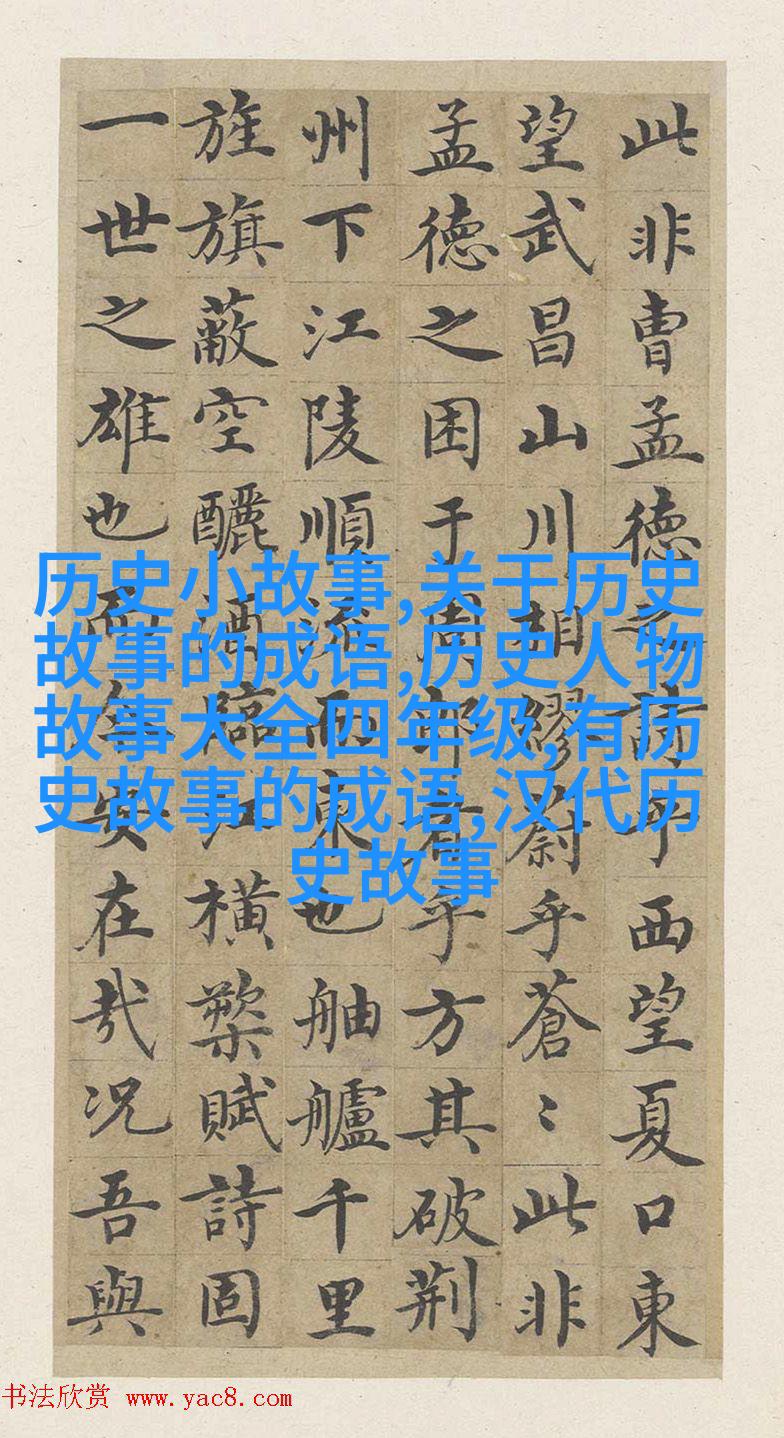 此非曹孟德之詩乎西望夏口東
望武昌山川相繆蔚乎蒼〻此非
孟德之困于周郎者乎方其破荆
州下江陵順流而東也舳艫千里
旌旗蔽空釃酒臨江横槊賦詩固
一世之雄也而今安在哉况吾與
历史小故事,关于历史
故事的成语,历史人物
故事大全四年级,有历
史故事的成语,汉代历
史故事
书法欣赏 www.yac8.com